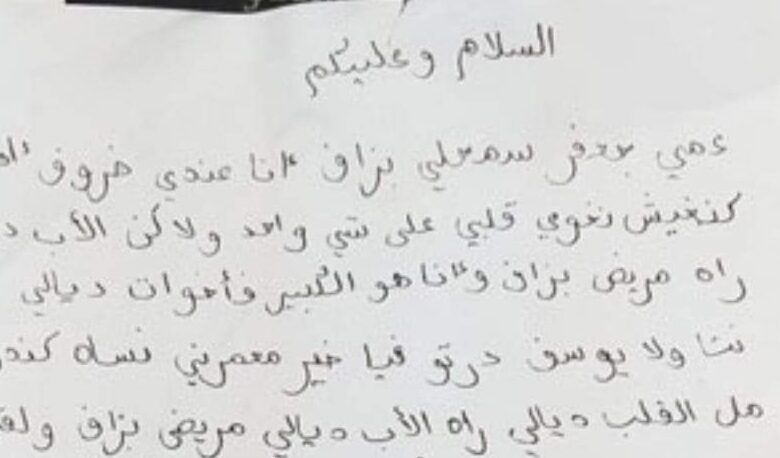 السلام وعليكم
عمي جعفر سمحلي بزاف انا عندي ضروف
كنغيش نخوي قلبي على شي واحد ولاكن الأب د
راه مريض بزاف وانا هو الكبير فأخوات ديالي
نتا ولا يوسف درتو فيا خير معمرني نساه كند
مل القلب ديالي راه الأب ديالي مريض بزاف ولف